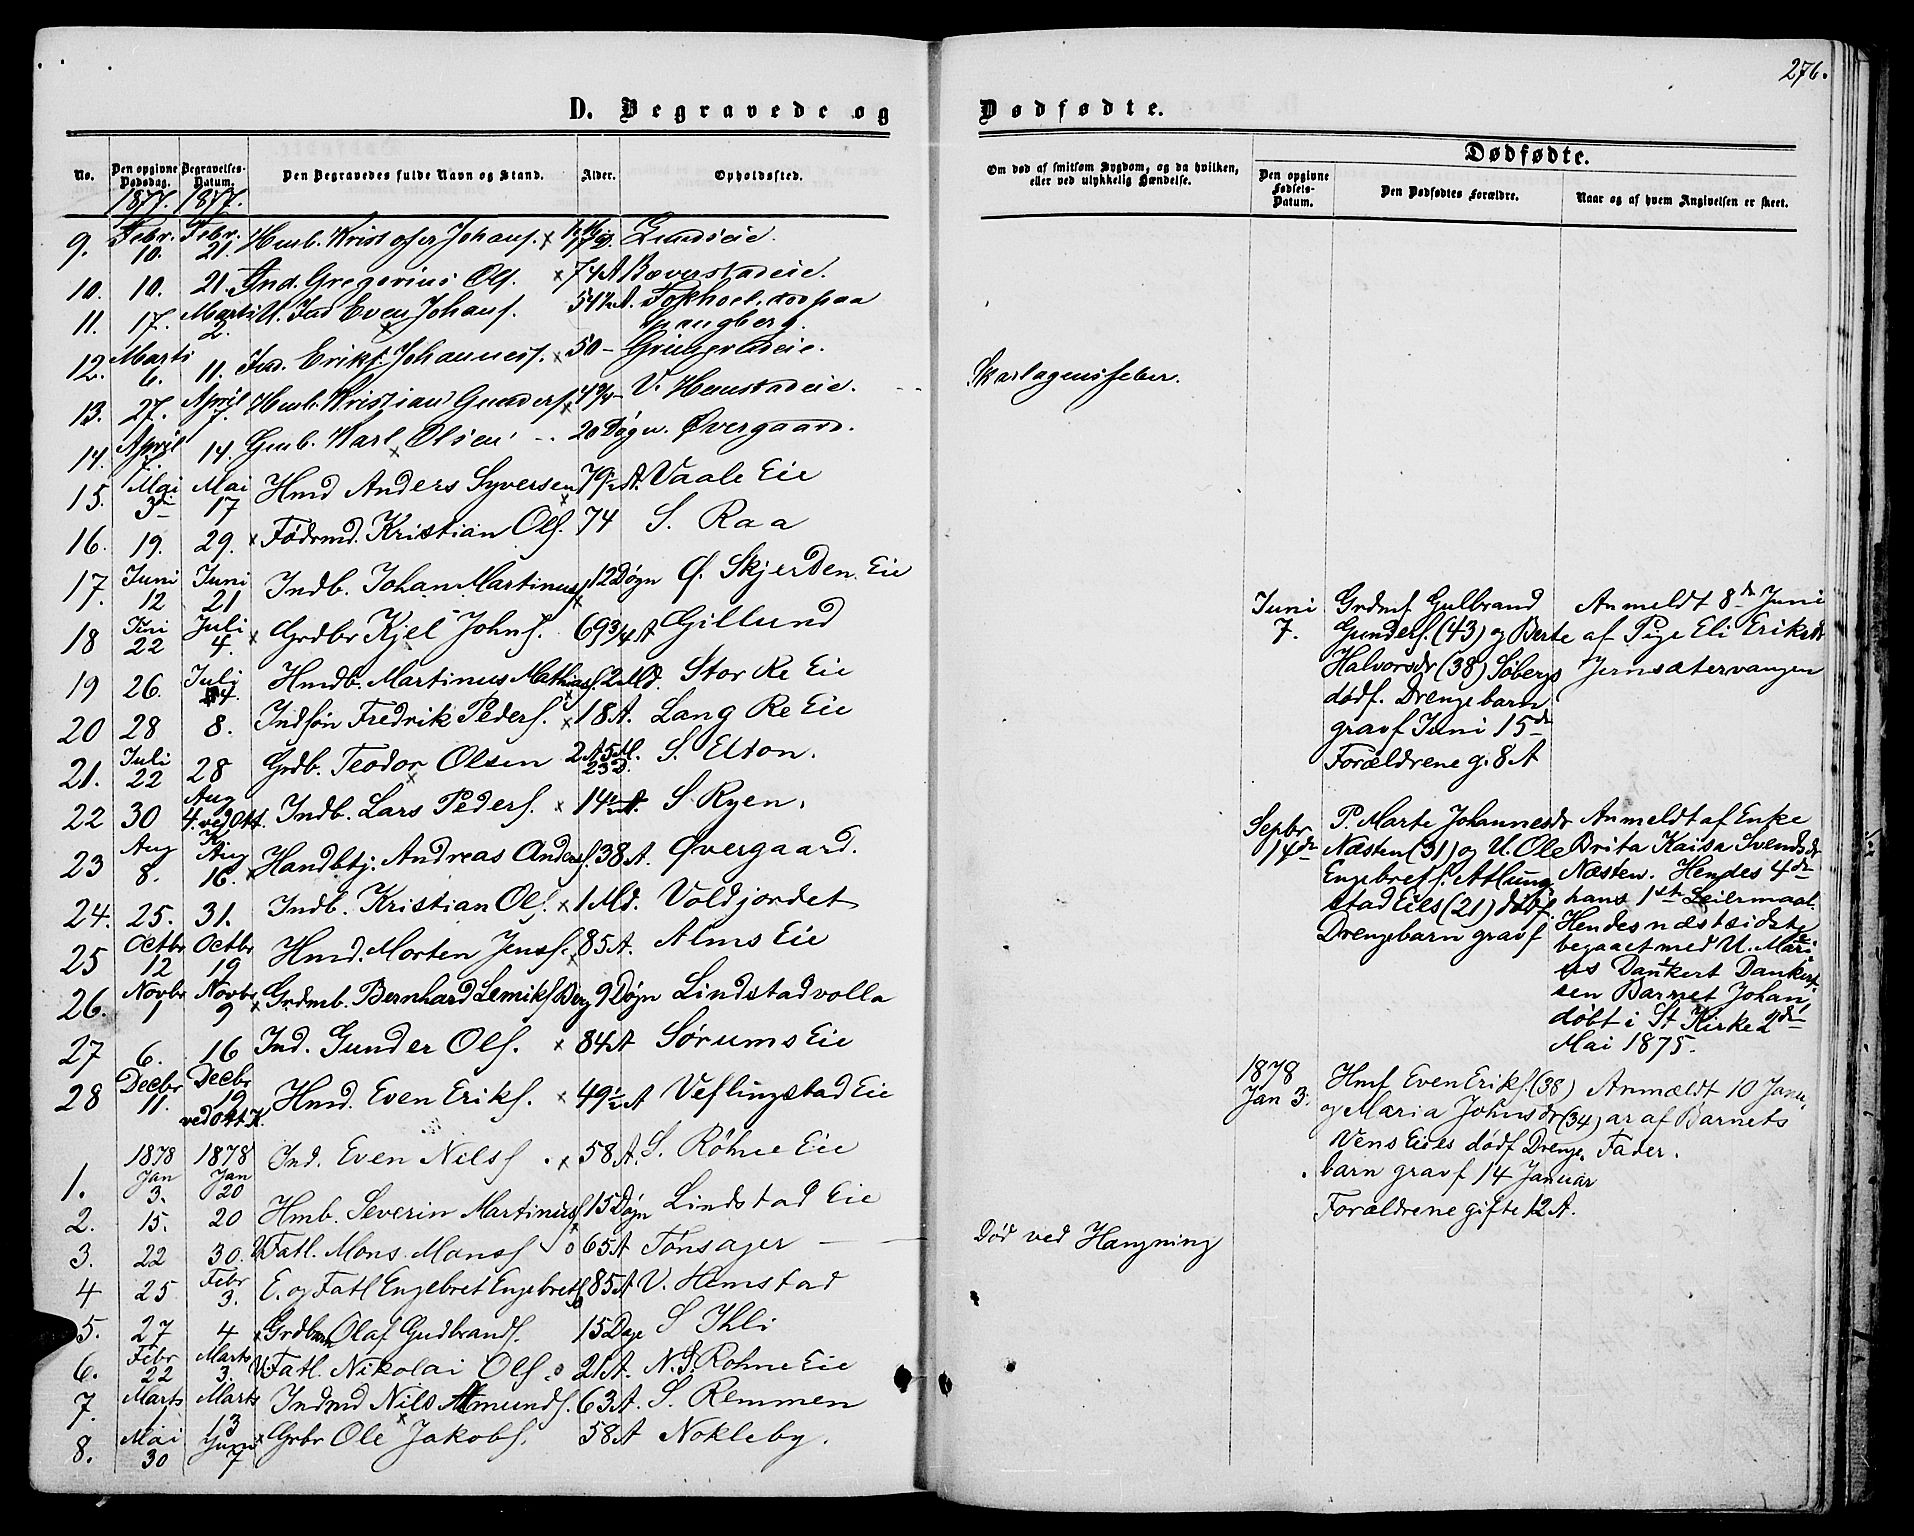 276.
D. Begravede og Dødfødte.
No. Den opgivne Dødsdag. Begravelses-Datum. Den Begravedes fulde Navn og Stand. Alder. Opholdssted.
1877. 1877.
9. Febr. 10. Febr. 21. Johans. x
10. 10. 21. Ind. Gregorius Ols. x 74 A
11. 17. Marts 2. U. Ind Even Johans. 54½ A.
12. Marts 6. 11. Ind. Johanness. x 50 –
13. 27. April 7. Kristian Gunders. x V. Hemstadeie.
14. April 7. 14. Gmb. Karl Olsen 20 Døgn. Øvergaard.
15. Mai 3die Mai 17 Hmd Anders Syversen x 79½ A. Vaale Eie
16. 19. 29. x Fødermd. Kristian Ols. 74 S. Raa
17. Juni 12 Juni 21 Indb. Johan Martinuss. x 12 Døgn Ø. Skjerden Eie
18 Juni 22 Juli 4. x Grdbr Kjel Johns. 69 3/4 A Gillund
19 26. Juli 4. Hmdb. Martinus Mathiass. x 2 Md. Stor Re Eie
20 28 8. Indsøn Fredrik Peders. x 18 A. Lang Re Eie
21. Juli 22 28 Grdb. Teodor Olsen x 2 A 5 M. 23 D. S. Elton.
22 30 Aug 4. ved Ott. K. Indb. Lars Peders. x 14½ A. S Ryen.
23 Aug 8. Aug 16. x Handbtj. Andreas Anders. 38 A. Øvergaard.
24. 25. 31. Indb. Kristian Ols. x 1 Md. Voldjordet
25 Octbr 12 Octbr 19 Hmd. Morten Jenss. x 85 A. Alms Eie
26. Novbr 1 Novbr 9 x Grdmb. Bernhard Lemiks Berg 9 Døgn Lindstadvolla
27 6. 16 Ind. Gunder Ols. x 84 A Sørums Eie
28 Decbr 11. Decbr 19 ved Ott K. Hmd. Even Eriks. x 49½ A Veflingstad Eie
1878 1878
1. Jan 3. Jan 20 Ind. Even Nilss. x 58 A. S. Røhne Eie
2. 15. 20 Hmb. Severin Martinuss. x 15 Døgn Lindstad Eie
3. 22 30. U. Fatl. Mons Monss o 65 A Tønsager
4 25 Febr 3. E. og Fatl Engebret Engebrets o 85 A V. Hemstad
5. 27 4 x Olaf Gudbrands. 15 Dage S Ihli
6. Febr 22 Marts 3. U. Fatl. Nikolai Ols. o 21 A. N. S. Rohne Eie
7. Marts 1 Marts 13 Indmd Nils Amunds. x 63 A. S. Remmen
8. Mai 30 Juni 7 x Grbr Ole Jakobs. 58 A Nokleby.
Om død af smitsom Sygdom, og da hvilken, eller ved ulykkelig Hændelse.
Skarlagensfeber.
Død ved Hængning
Dødfødte.
Den opgivne Fødsels-Datum. Den Dødfødtes Forældre. Naar og af hvem Angivelsen er skeet.
Juni 7.
Grdmf. Gulbrand
Gunders. (43) og Berte
Halvorsdr (38) Søbergs
dødf. Drengebarn
gravf Juni 15de
Forældrene g. 8 A
Anmeldt 8de Juni
af Pige Eli Eriksdr
Jernsætervangen
Sepbr 14de
P. Marte Johannesdr
Næsten (31) og U. Ole
Engebrets. Atlung
stad Eies (21) dødf.
Drengebarn gravf
Anmeldt af Enke
Brita Kaisa Svendsdr
Næsten. Hendes 4de
hans 1ste Leiermaal.
Hendes næstsidste
begaaet med U. Mari
us Dankert Dankert
sen Barnet Johan,
døbt i St Kirke 2den
Mai 1875.
1878
Jan 3.
Hmf Even Eriks. (38)
og Maria Johnsdr (34)
Vens Eies dødf Drenge
barn gravf 14 Januar
Forældrene gifte 12 A.
Anmældt 10 Janu
ar af Barnets
Fader.